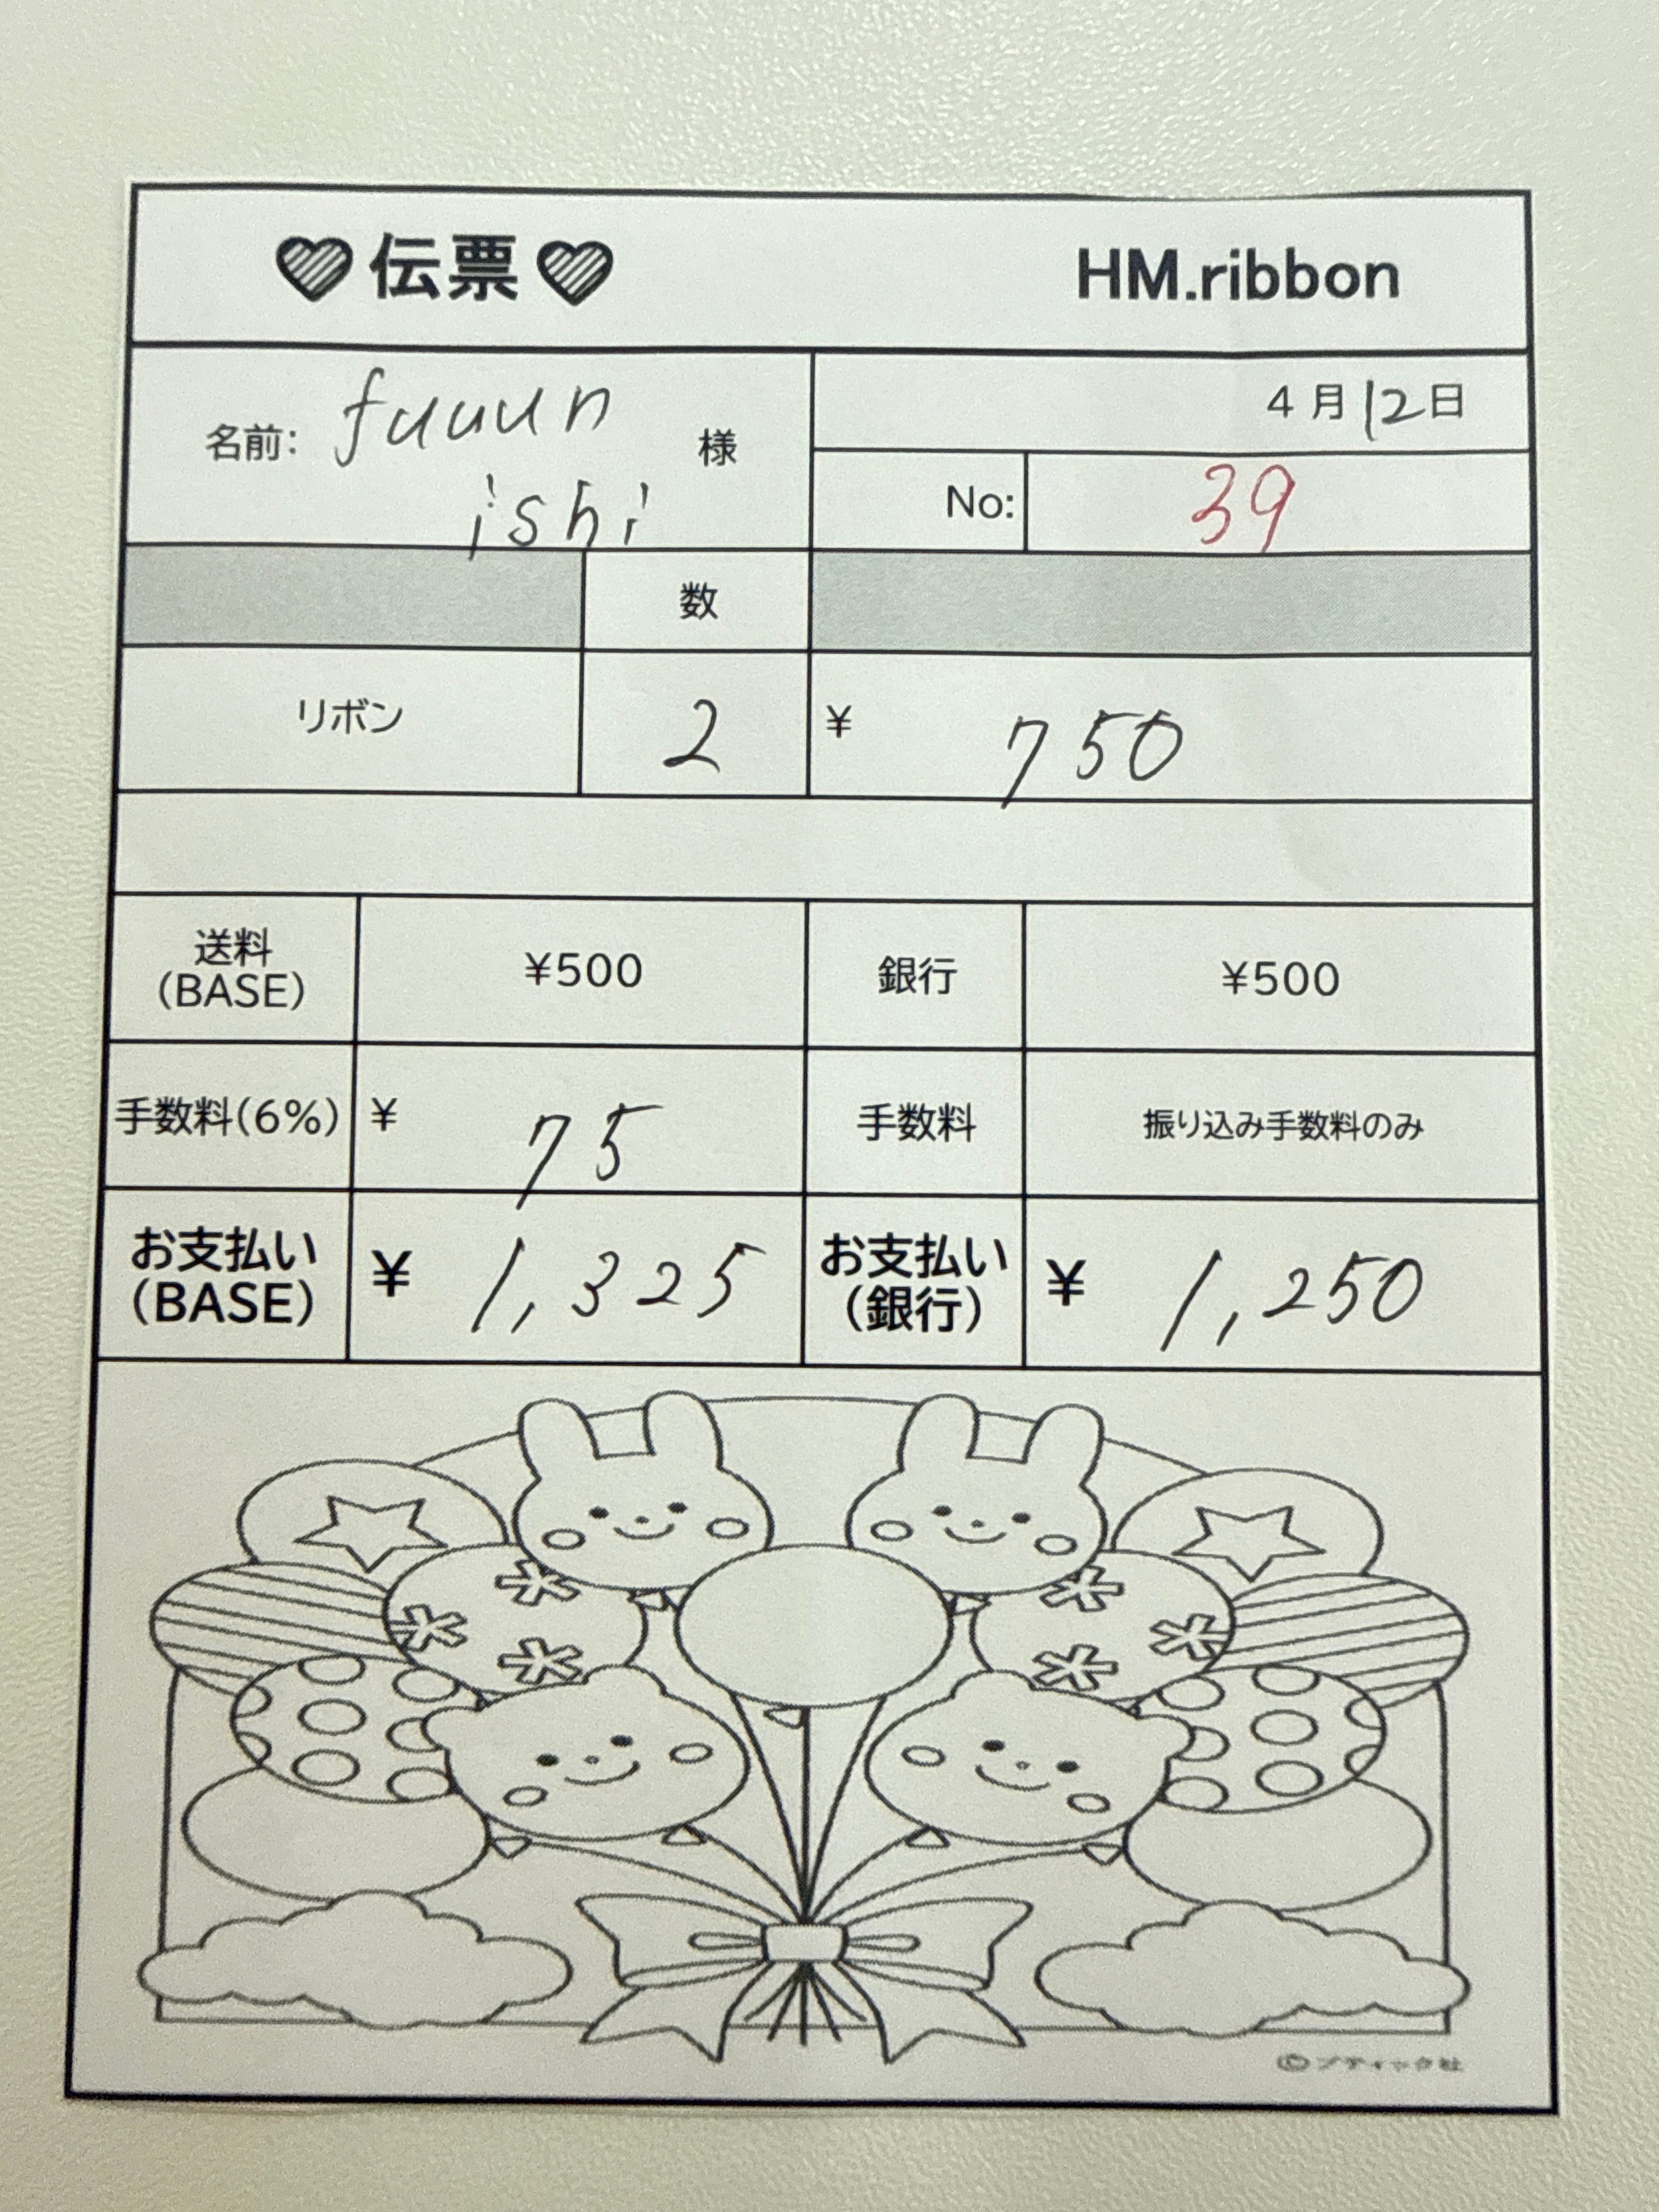 ♡伝票♡ HM.ribbon
名前: fuuun ishi 様
4月12日
No: 39
数
リボン 2 ¥ 750
送料(BASE) ¥500 銀行 ¥500
手数料(6%) ¥ 75 手数料 振り込み手数料のみ
お支払い(BASE) ¥ 1,325 お支払い(銀行) ¥ 1,250
©ブティック社